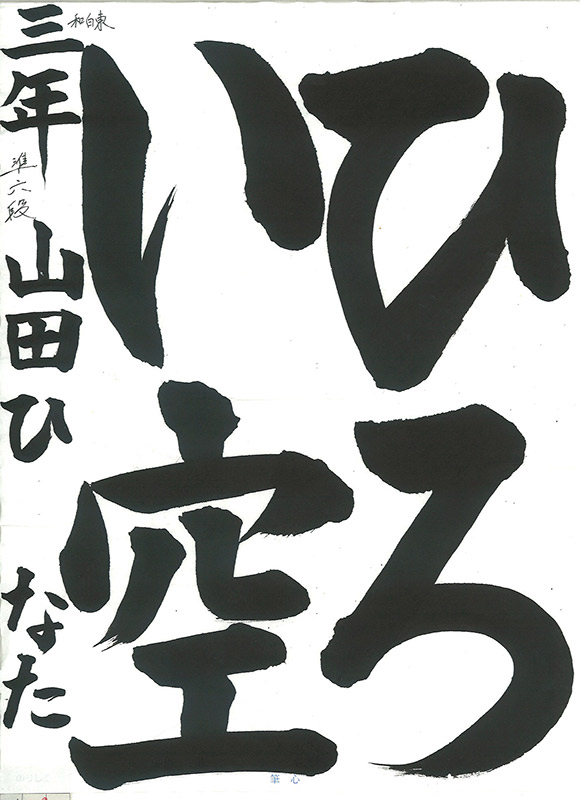 ひろ
い空
和白東
三年 準六段 山田ひなた
筆心